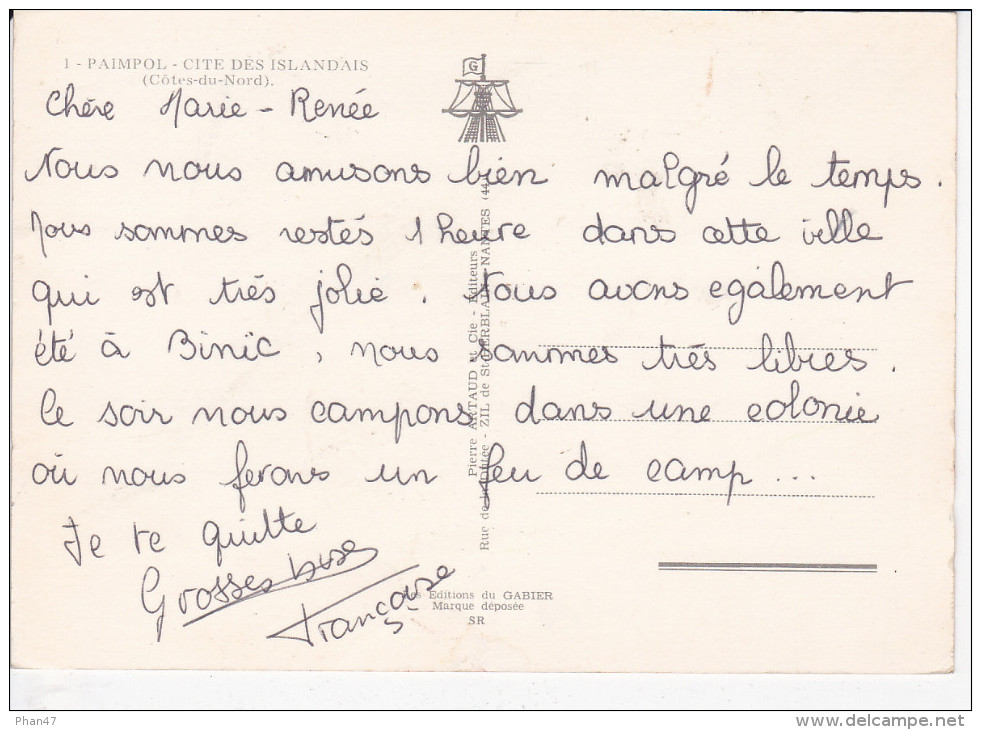 1 - PAIMPOL - CITE DES ISLANDAIS
(Côtes-du-Nord).
G
Chère Marie-Renée
Nous nous amusons bien malgré le temps.
Nous sommes restés 1 heure dans cette ville
qui est très jolie. Nous avons egalement
été à Binic, nous sommes très libres.
Ce soir nous campons dans une colonie
où nous ferons un feu de camp...
Je te quitte
Grosses bises
Françoise
Pierre ARTAUD et Cie - Editeurs
Rue de la Planchonnais - ZIL de St-HERBLAIN - NANTES (44)
Les Editions du GABIER
Marque déposée
SR
Phan47
www.delcampe.net